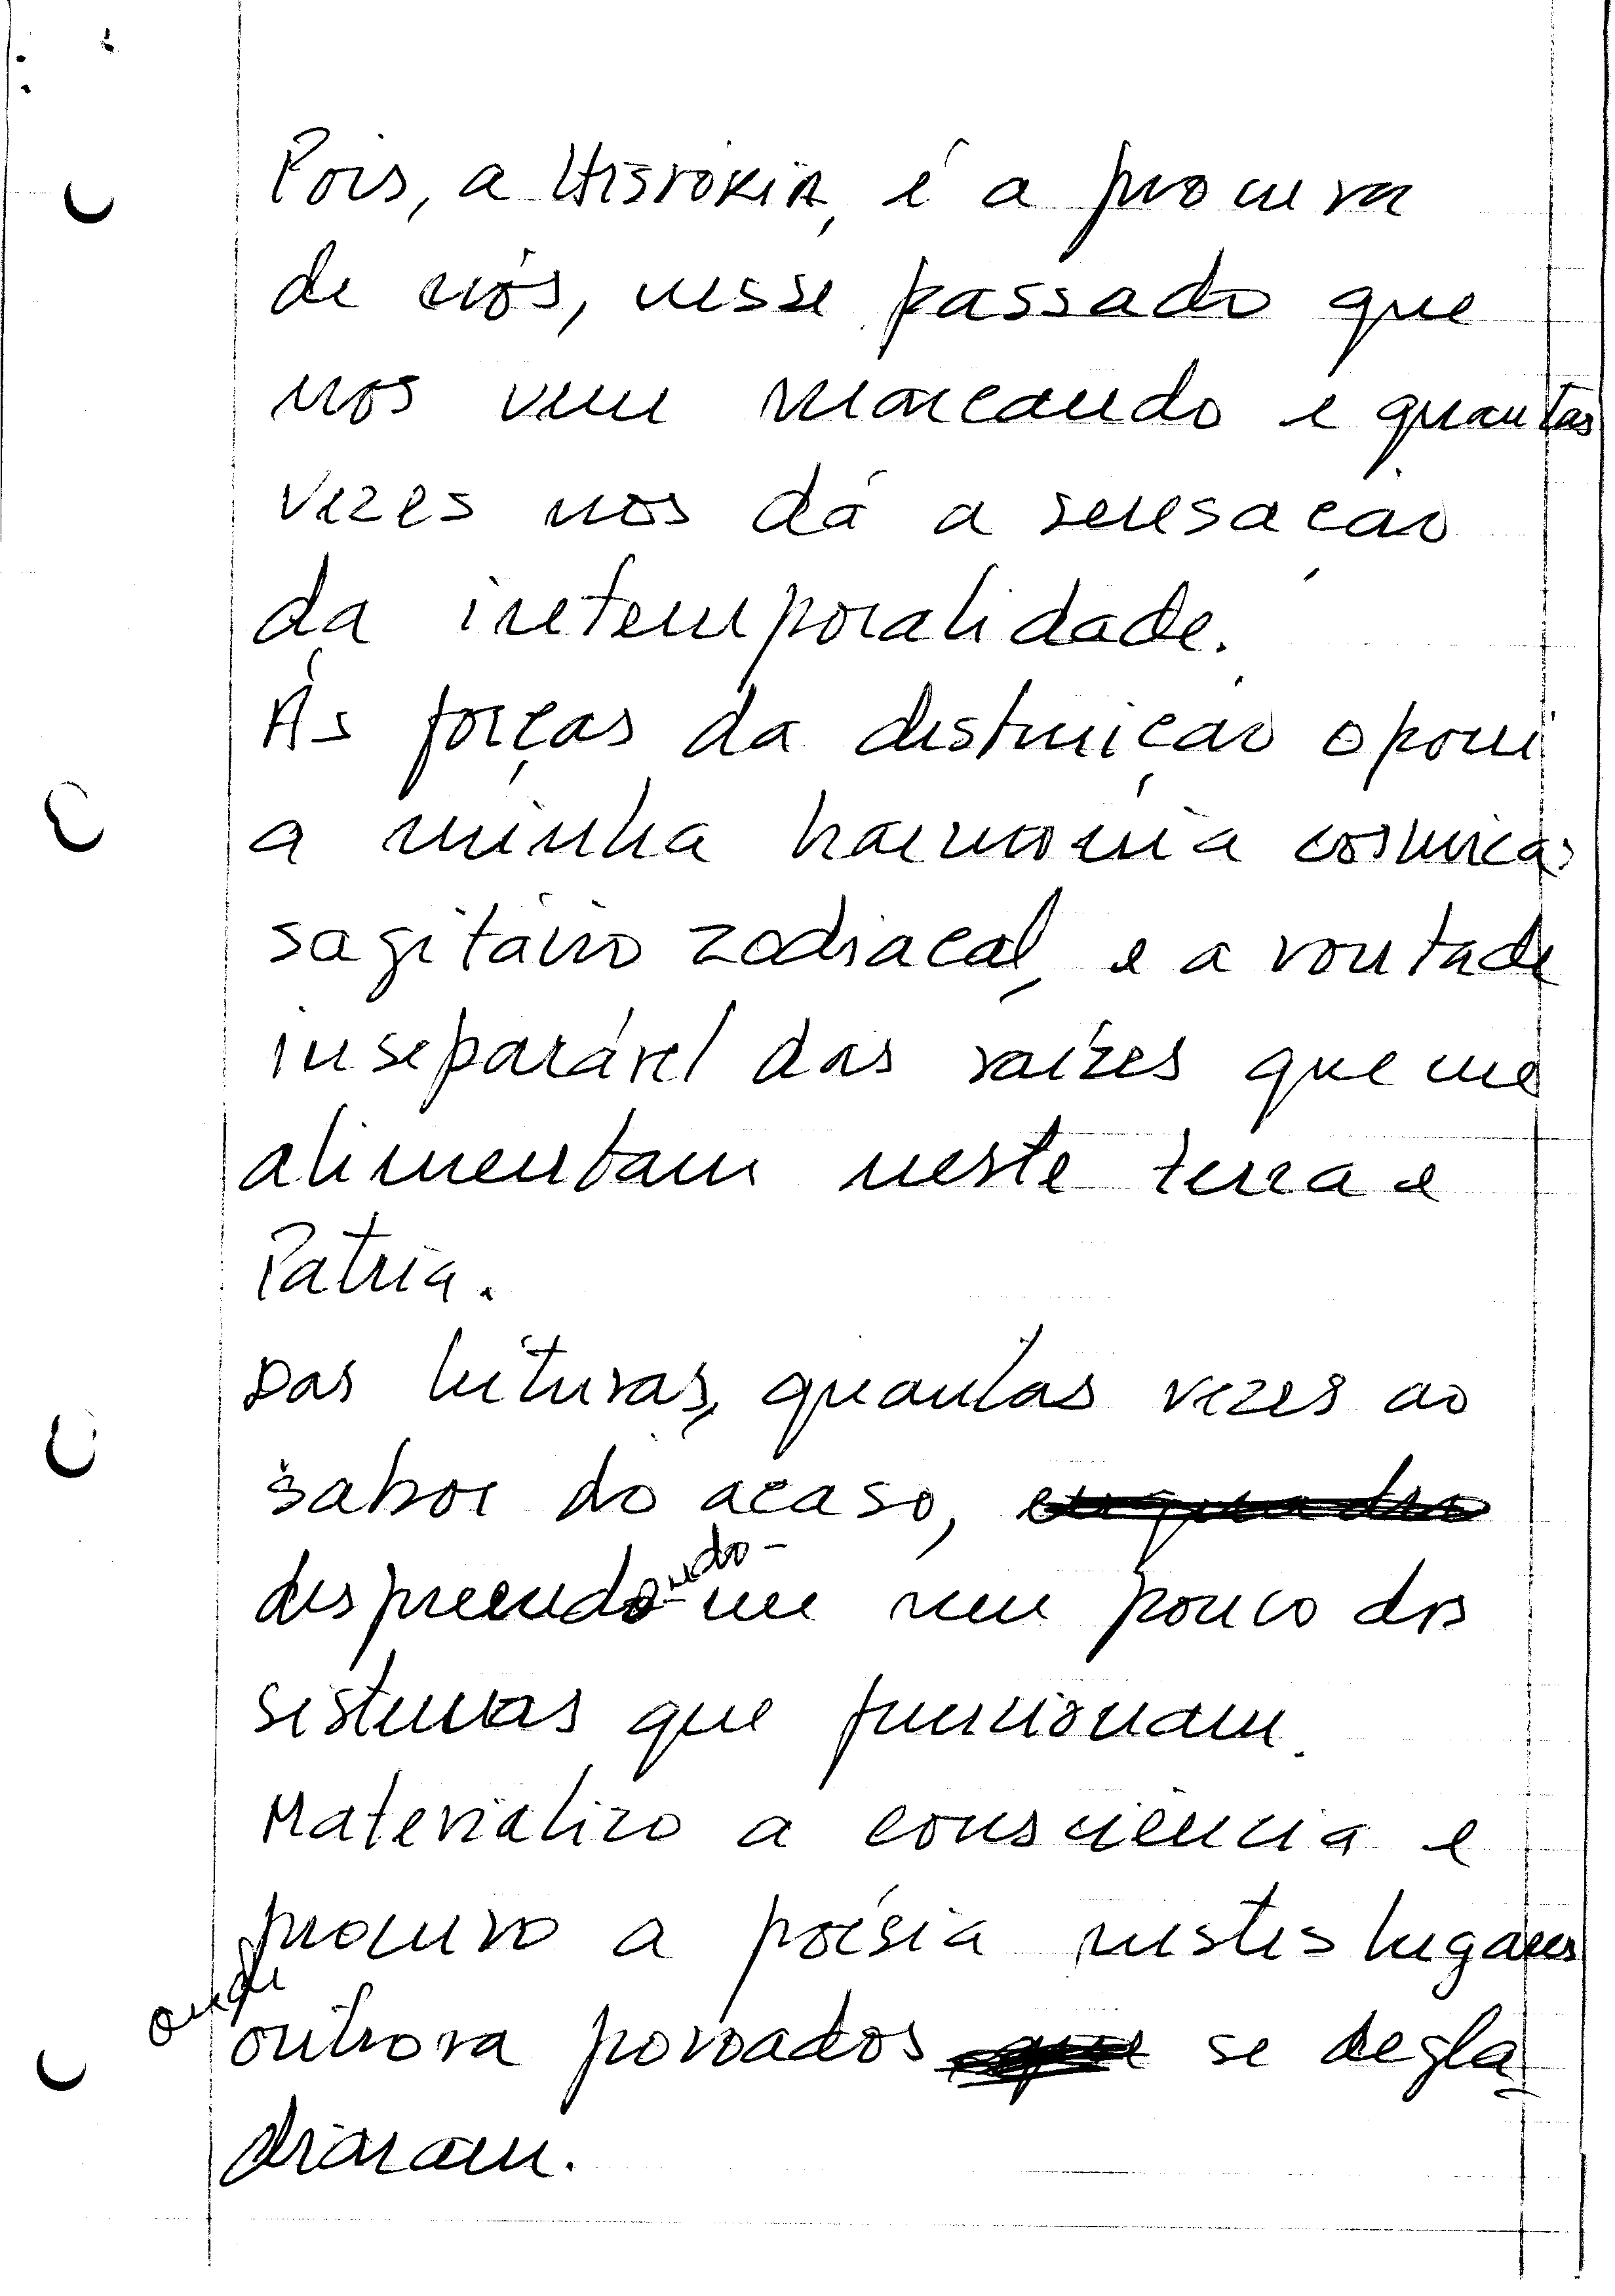 Pois, a HISTÓRIA, é a procura
de nós, nesse passado que
nos vem marcando e quantas
vezes nos dá a sensação
da intemporalidade.
Às forças da destruição oponi
a minha harmonia cosmica,
sagitário zodiacal, e a vontade
inseparável das raízes que me
alimentam neste terra e
Patria.
Das leituras, quantas vezes ao
sabor do acaso,
desprendendo-me num pouco dos
sistemas que funcionam.
Materializo a consciência e
procuro a poésia nestes lugares
onde
outrora povoados se degla-
diaram.